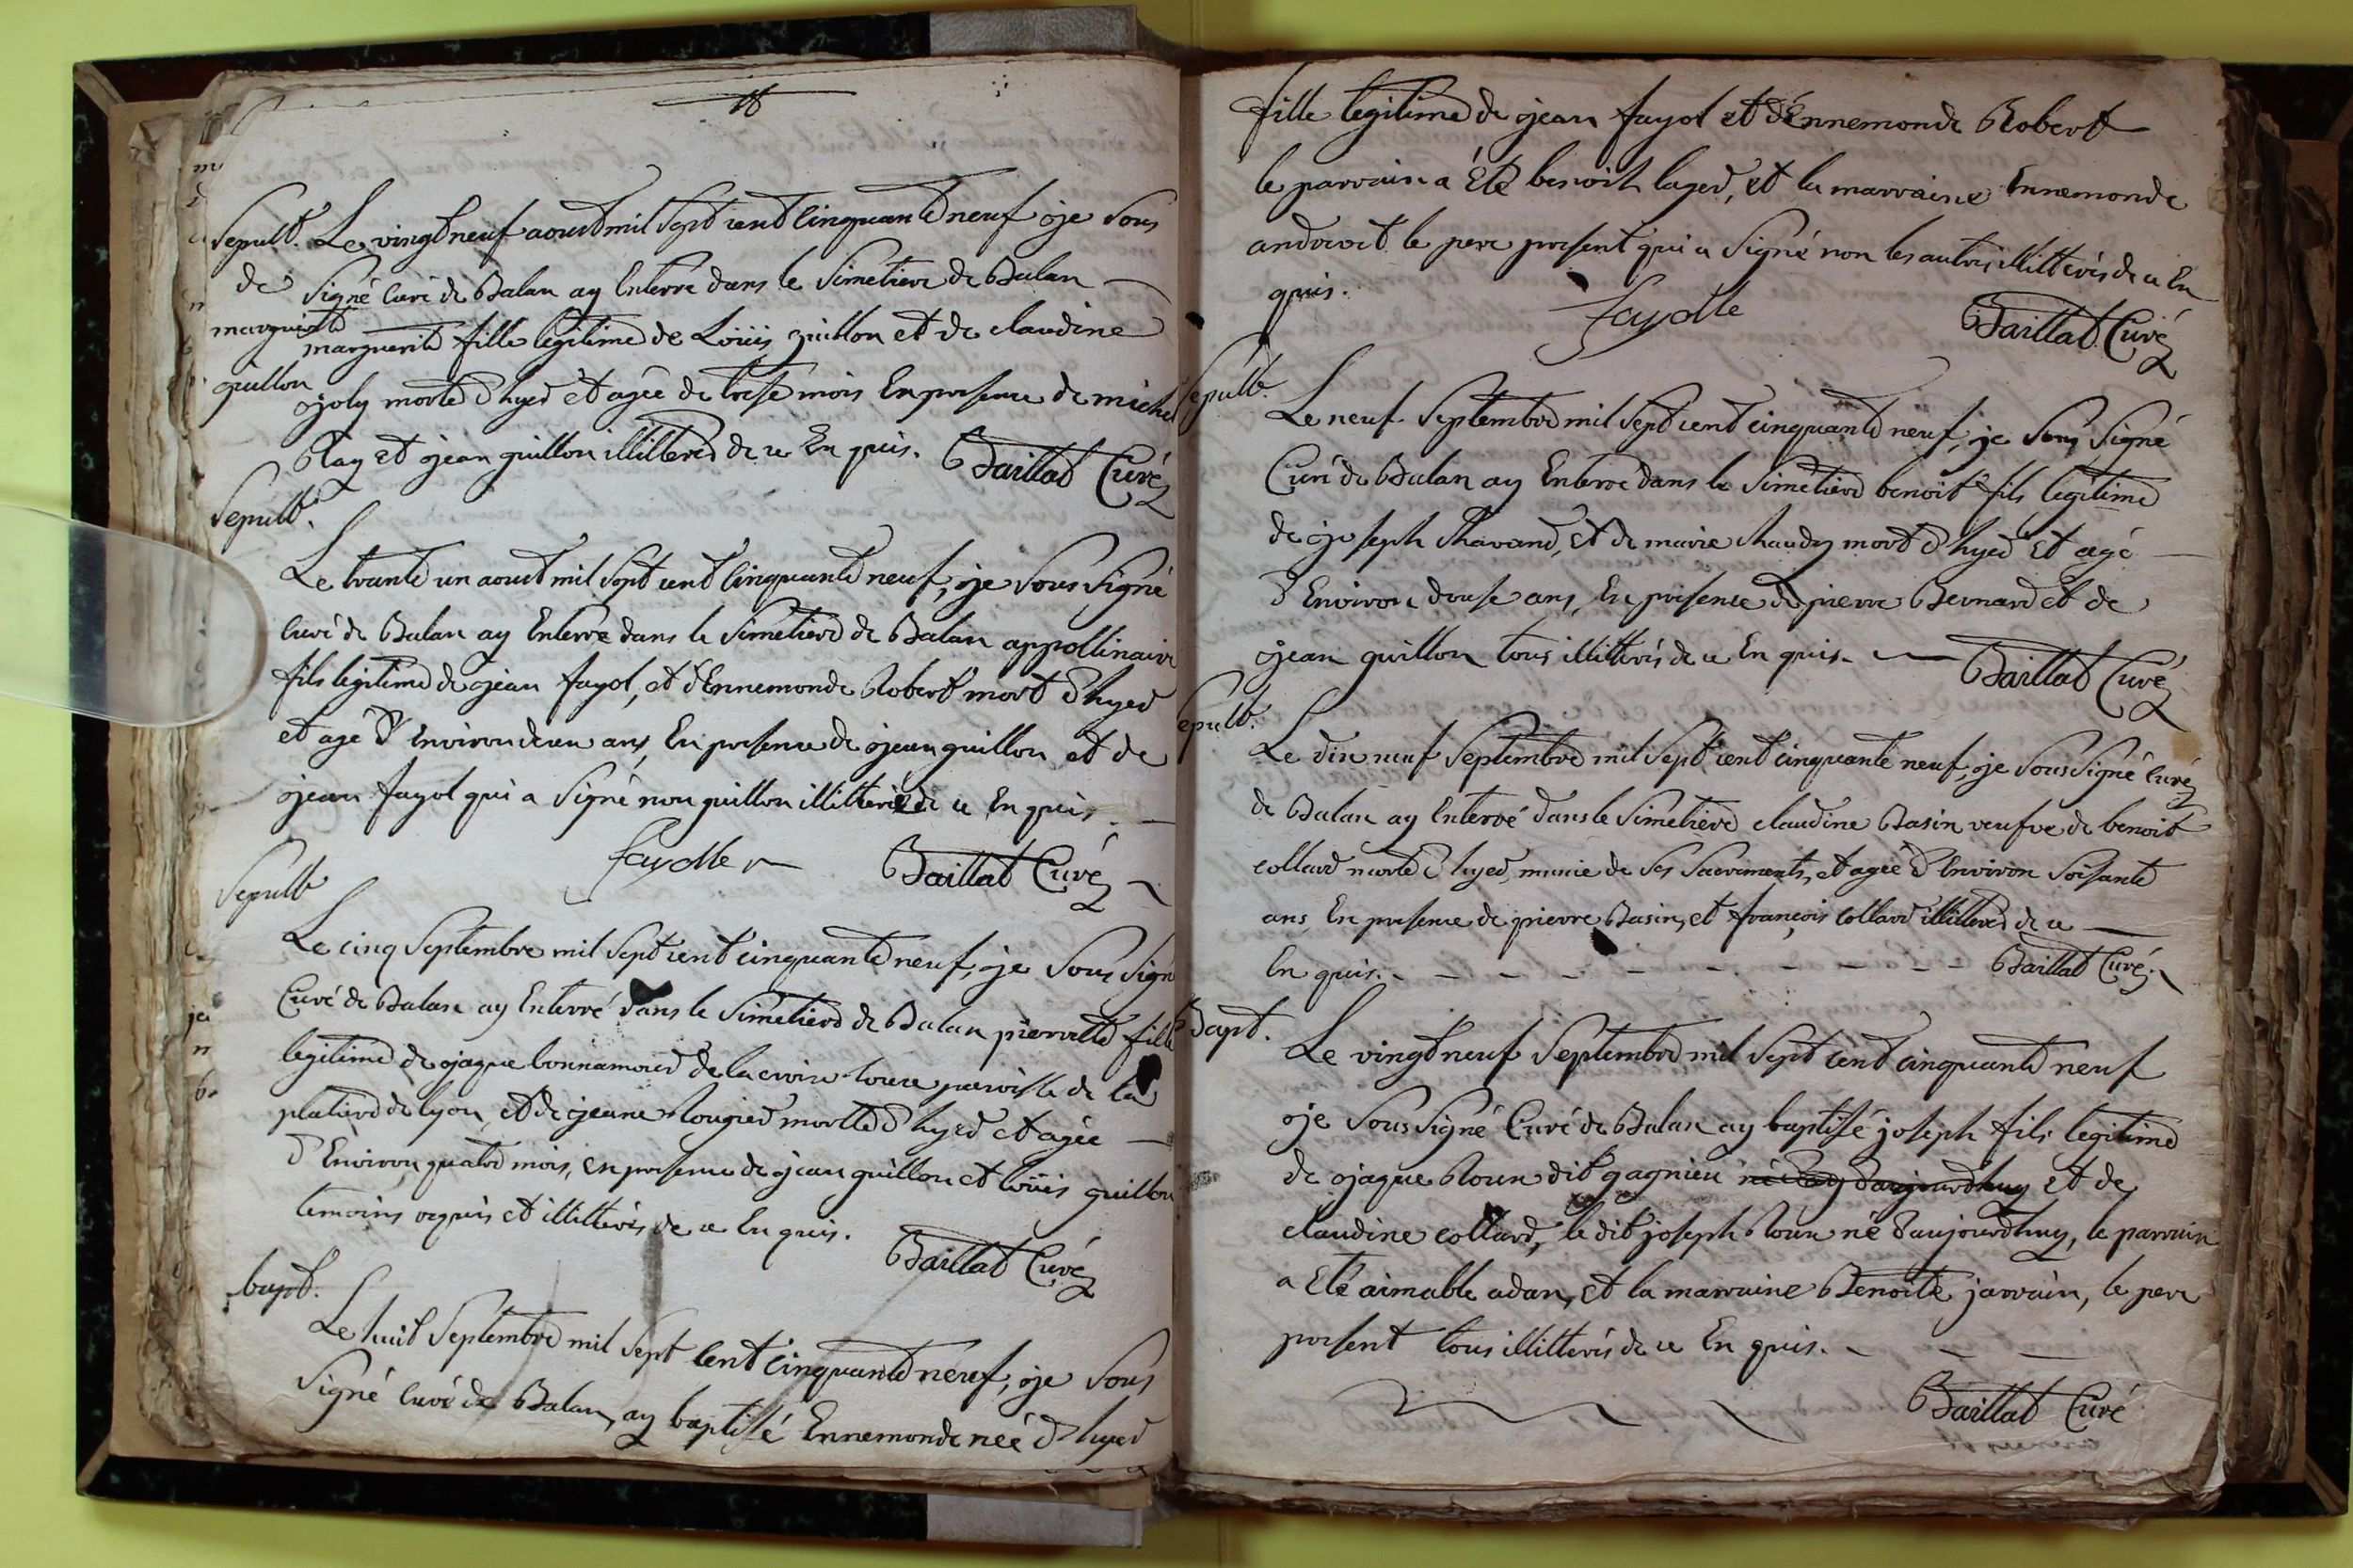 Sepult. Le vingt neuf aoust mil Sept cent Cinquante neuf je Sous
de Signé Curé de Balan ay Enterré dans le Simetiere de Balan
marguerite marguerite fille legitime de Loüis guillon et de claudine
guillon joly morte d'hyer et agée de trese mois En presence de michel
Ray et jean guillon illitteres de ce En quis. Baillat Curé
Sepult.
Le trante un aoust mil Sept cent Cinquante neuf, je Sous Signé
Curé de Balan ay Enterré dans le Simetiere de Balan appollinaire
fils legitime de jean fayol, et d'Ennemonde Robert mort d'hyer
et agé d'Environ deux ans, En presence de jean guillon et de
jean fayol qui a Signé non guillon illitteré de ce En quis.
fayolle Baillat Curé
Sepult
Le cinq Septembre mil Sept cent cinquante neuf, je Sous Signé
Curé de Balan ay Enterré dans le Simetiere de Balan pierrette fille
legitime de jaque bonnamour de la croix rouce paroisse de la
platiere de lyon, et de jeane Rougier morte d'hyer et agée
d'Environ quatre mois, en presence de jean guillon et loüis guillon
temoins requis et illitterés de ce En quis.
Baillat Curé
bapt.
Le huit Septembre mil Sept cent cinquante neuf, je Sous
Signé Curé de Balan, ay baptisé Ennemonde née d'hyer
fille legitime de jean fayol et d'Ennemonde Robert
le parrain a Eté benoit lager, et la marraine Ennemonde
andrivet le pere present qui a Signé non les autres illitterés de ce En
quis. fayolle Baillat Curé
Sepult.
Le neuf Septembre mil Sept cent cinquante neuf, je Sous Signé
Curé de Balan ay Enterré dans le Simetiere benoit fils legitime
de joseph Thavand, et de marie Chaudy mort d'hyer et agé
d'Environ douse ans, En presence de pierre Bernard et de
jean guillon tous illitterés de ce En quis. Baillat Curé
Sepult.
Le dix neuf Septembre mil Sept cent cinquante neuf, je Sous Signé Curé
de Balan ay Enterré dans le Simetiere claudine Basin veufve de benoit
collard morte d'hyer, munie de Ses Sacrements, et agée d'Environ Soisante
ans, En presence de pierre Basin, et françois Collard illitteres de ce
En quis. Baillat Curé.
Bapt.
Le vingt neuf Septembre mil Sept cent cinquante neuf
je Sous Signé Curé de Balan ay baptisé joseph fils legitime
de jaque Roux dit gagnieu né daujourdhuy et de
claudine collard, le dit joseph Roux né daujourdhuy, le parrain
a Eté aimable adan, et la marraine Benoite jarrain, le pere
present tous illitterés de ce En quis.
Baillat Curé